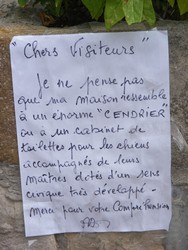 "Chers Visiteurs"
Je ne pense pas
que ma maison ressemble
à un énorme "CENDRIER"
ou a un cabinet de
toilettes pour les chiens
accompagnés de leurs
maîtres dotés d'un sens
civique très développé -
merci pour votre Compréhension